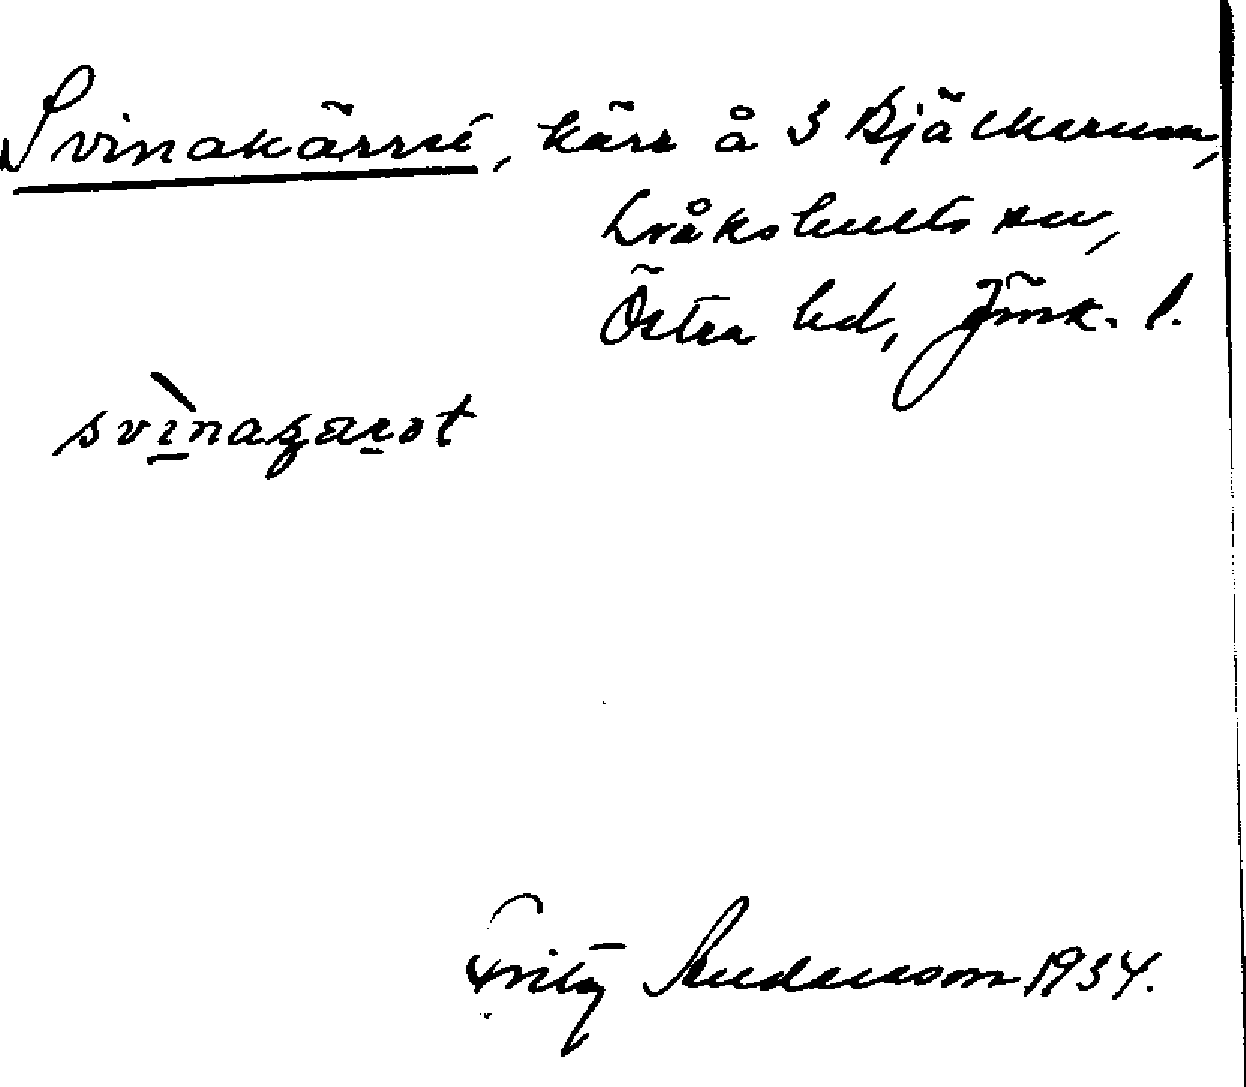 Svinakärret, kärr å S Bjälkerum,
Lråkshults sn,
Östra hd, Jönk. l.
svìnaꞩarət
Fritz Andersson 1934.